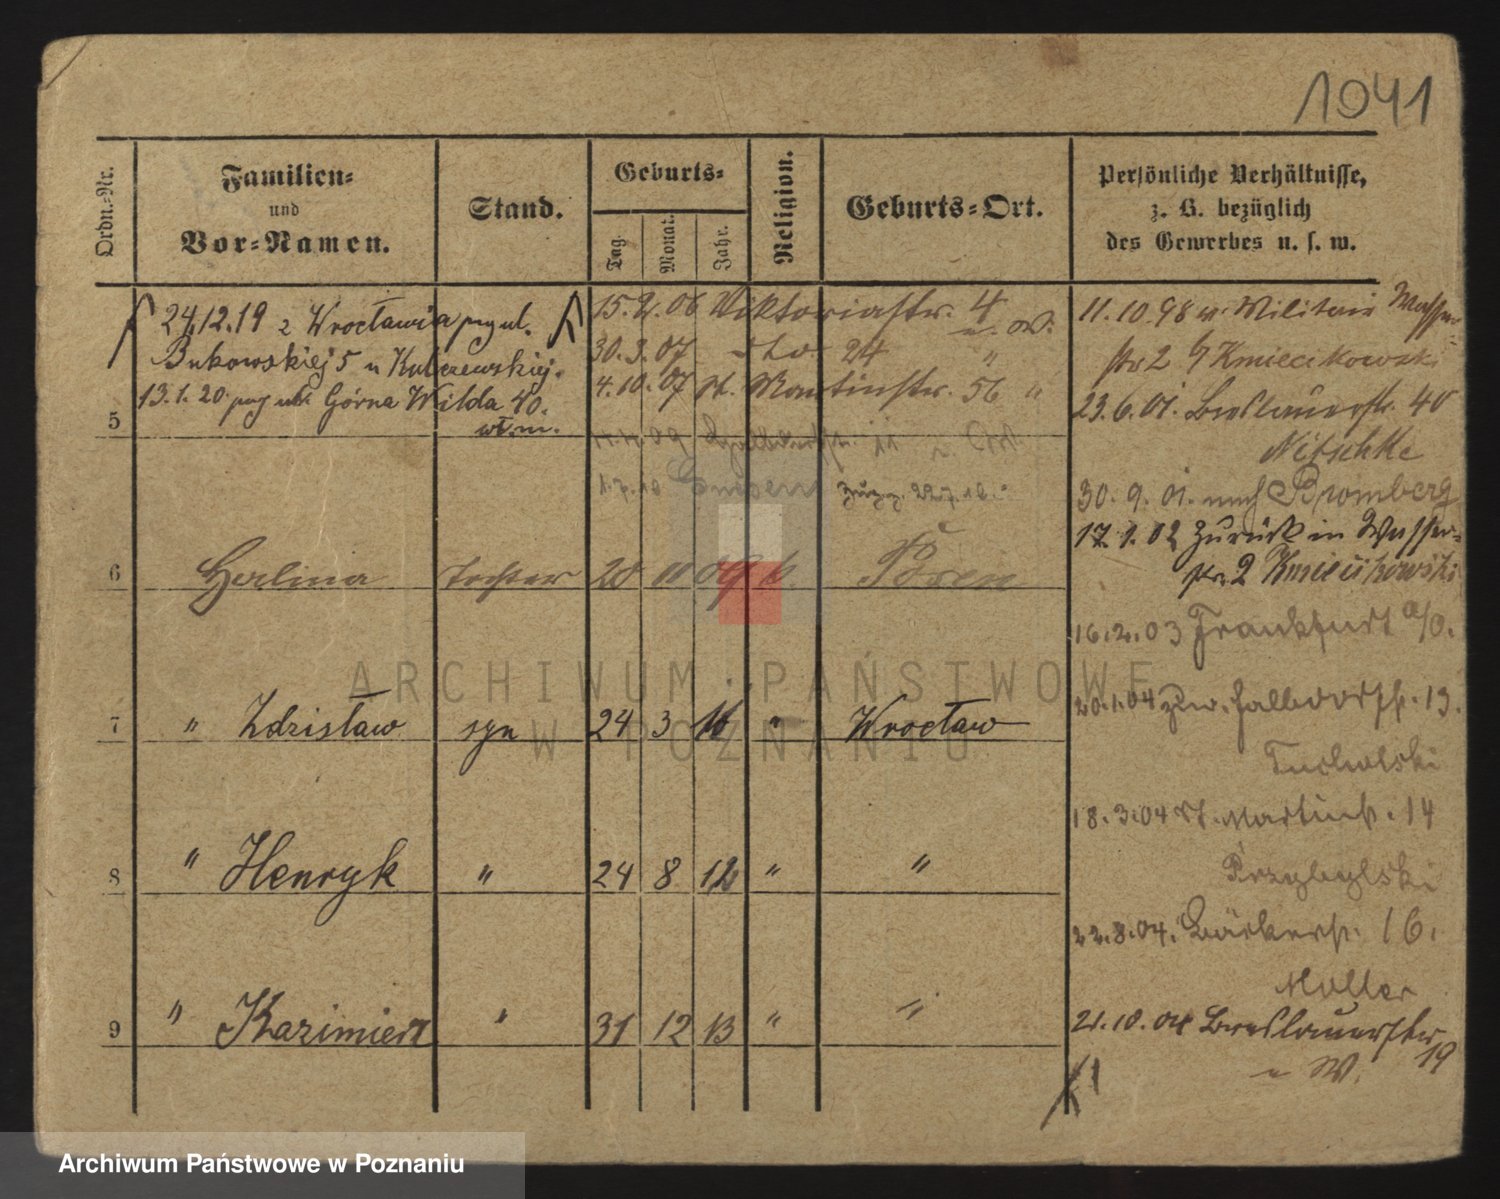 1941
Ordn.-Nr.
Familien-
und
Vor-Namen.
Stand.
Geburts-
Tag.
Monat.
Jahr.
Religion.
Geburts-Ort.
Persönliche Verhältnisse,
z. B. bezüglich
des Gewerbes u. s. w.
24.12.19 z Wrocławia przy ul.
Bukowskiej 5 u
13.1.20. przy ul. Górna Wilda 40.
wł. m.
15.2.06 Viktoriastr. 4
u. W.
30.3.07 dto. 24 "
4.10.07 St. Martinstr. 56 "
5
11
1.7.10 22.7.10.
11.10.98 Militair Wasser-
str 2 b/ Kmiecikowski
23.6.01. Breslauerstr. 40
Nitschke
30.9.01. nach Bromberg
17.1.02 Zurück in Wasser-
str. 2 Kmiecikowski
16.2.03 Frankfurt a/O.
20.1.04 zur. Halbdorfstr. 13.
Tucholski
18.3.04 St. Martinstr. 14
Przybylski
22.8.04. Bäckerstr. 16.
Müller
21.10.04 Breslauerstr
19
u W.
6 Halina tochter 20 k Posen
7 " Zdzisław syn 24 3 11 " Wrocław
8 " Henryk " 24 8 12 " "
9 " Kazimierz " 31 12 13 " "
ARCHIWUM PAŃSTWOWE
W POZNANIU
Archiwum Państwowe w Poznaniu